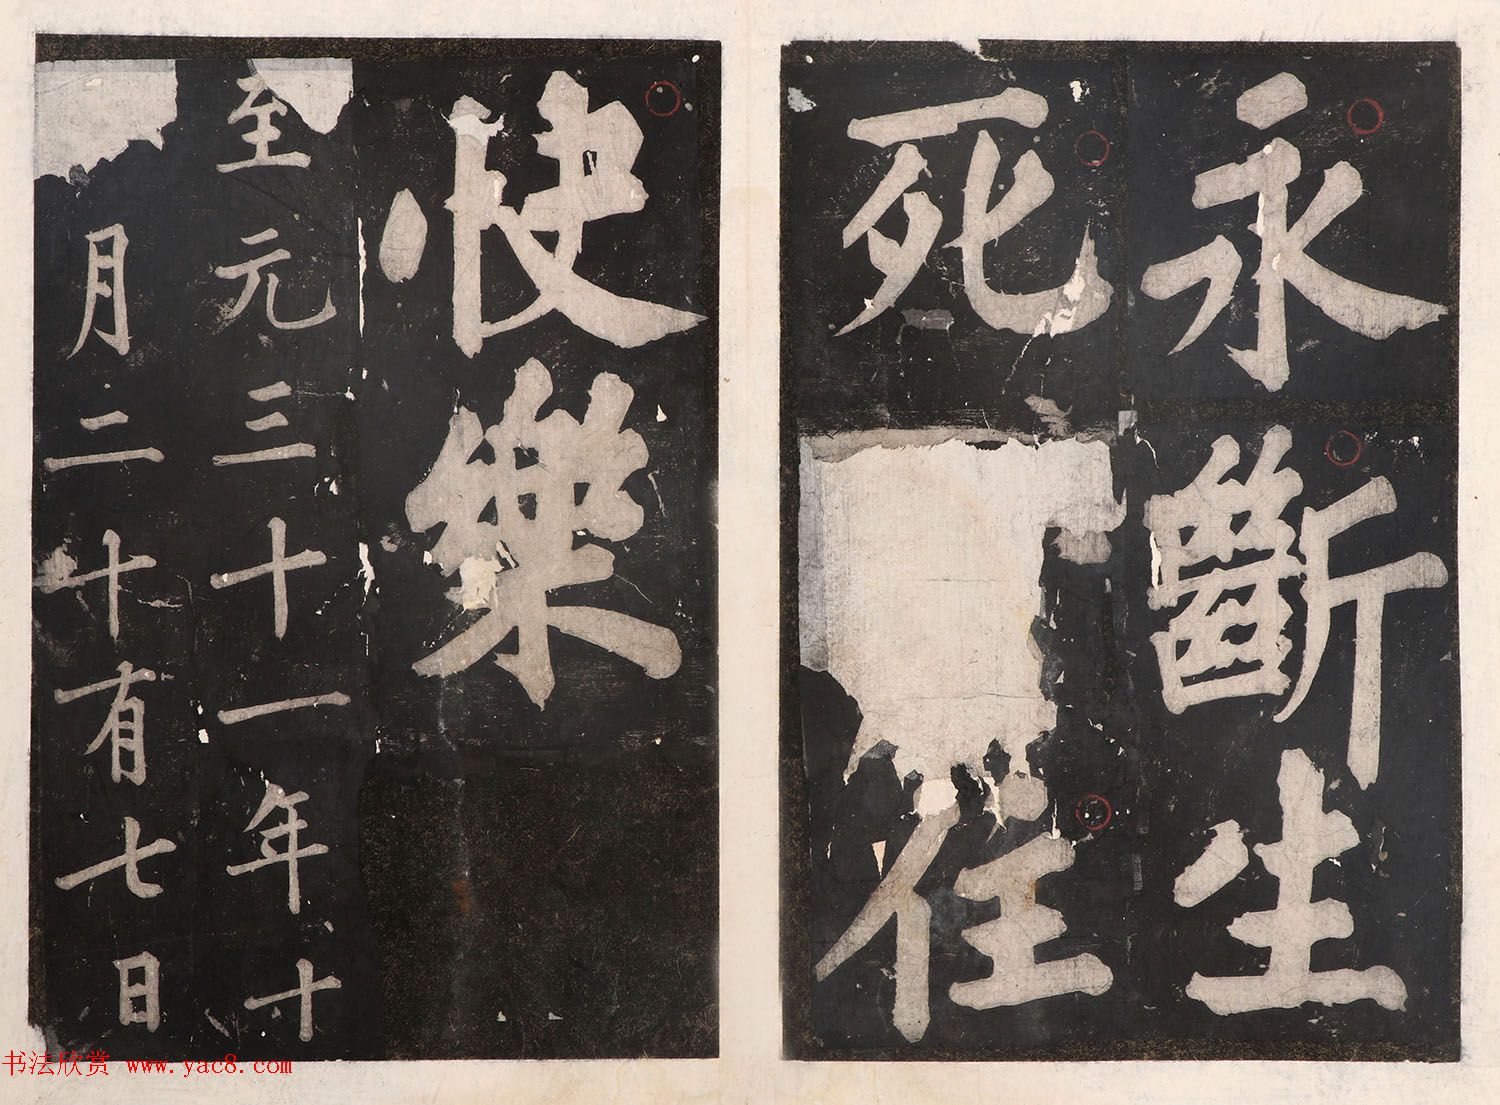 永斷生
死住
快樂
至元三十一年十
月二十有七日
书法欣赏 www.yac8.com